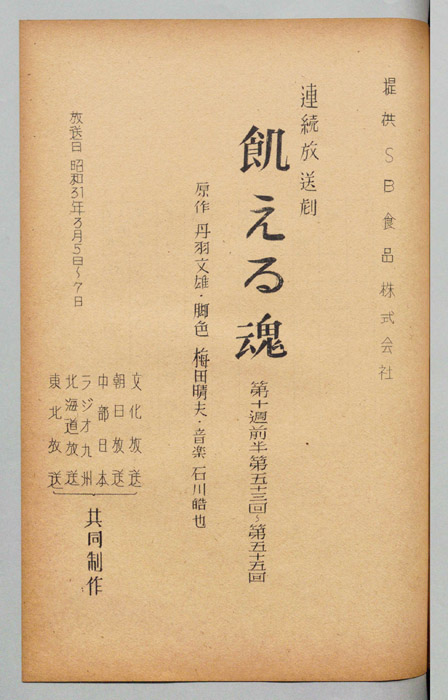 提供 SB食品株式会社
連続放送劇
飢える魂
第十週前半 第五十三回〜第五十五回
原作 丹羽文雄・脚色 梅田晴夫・音楽 石川皓也
放送日 昭和31年3月5日〜7日
文化放送
朝日放送
中部日本
ラジオ九州
北海道放送
東北放送
共同制作